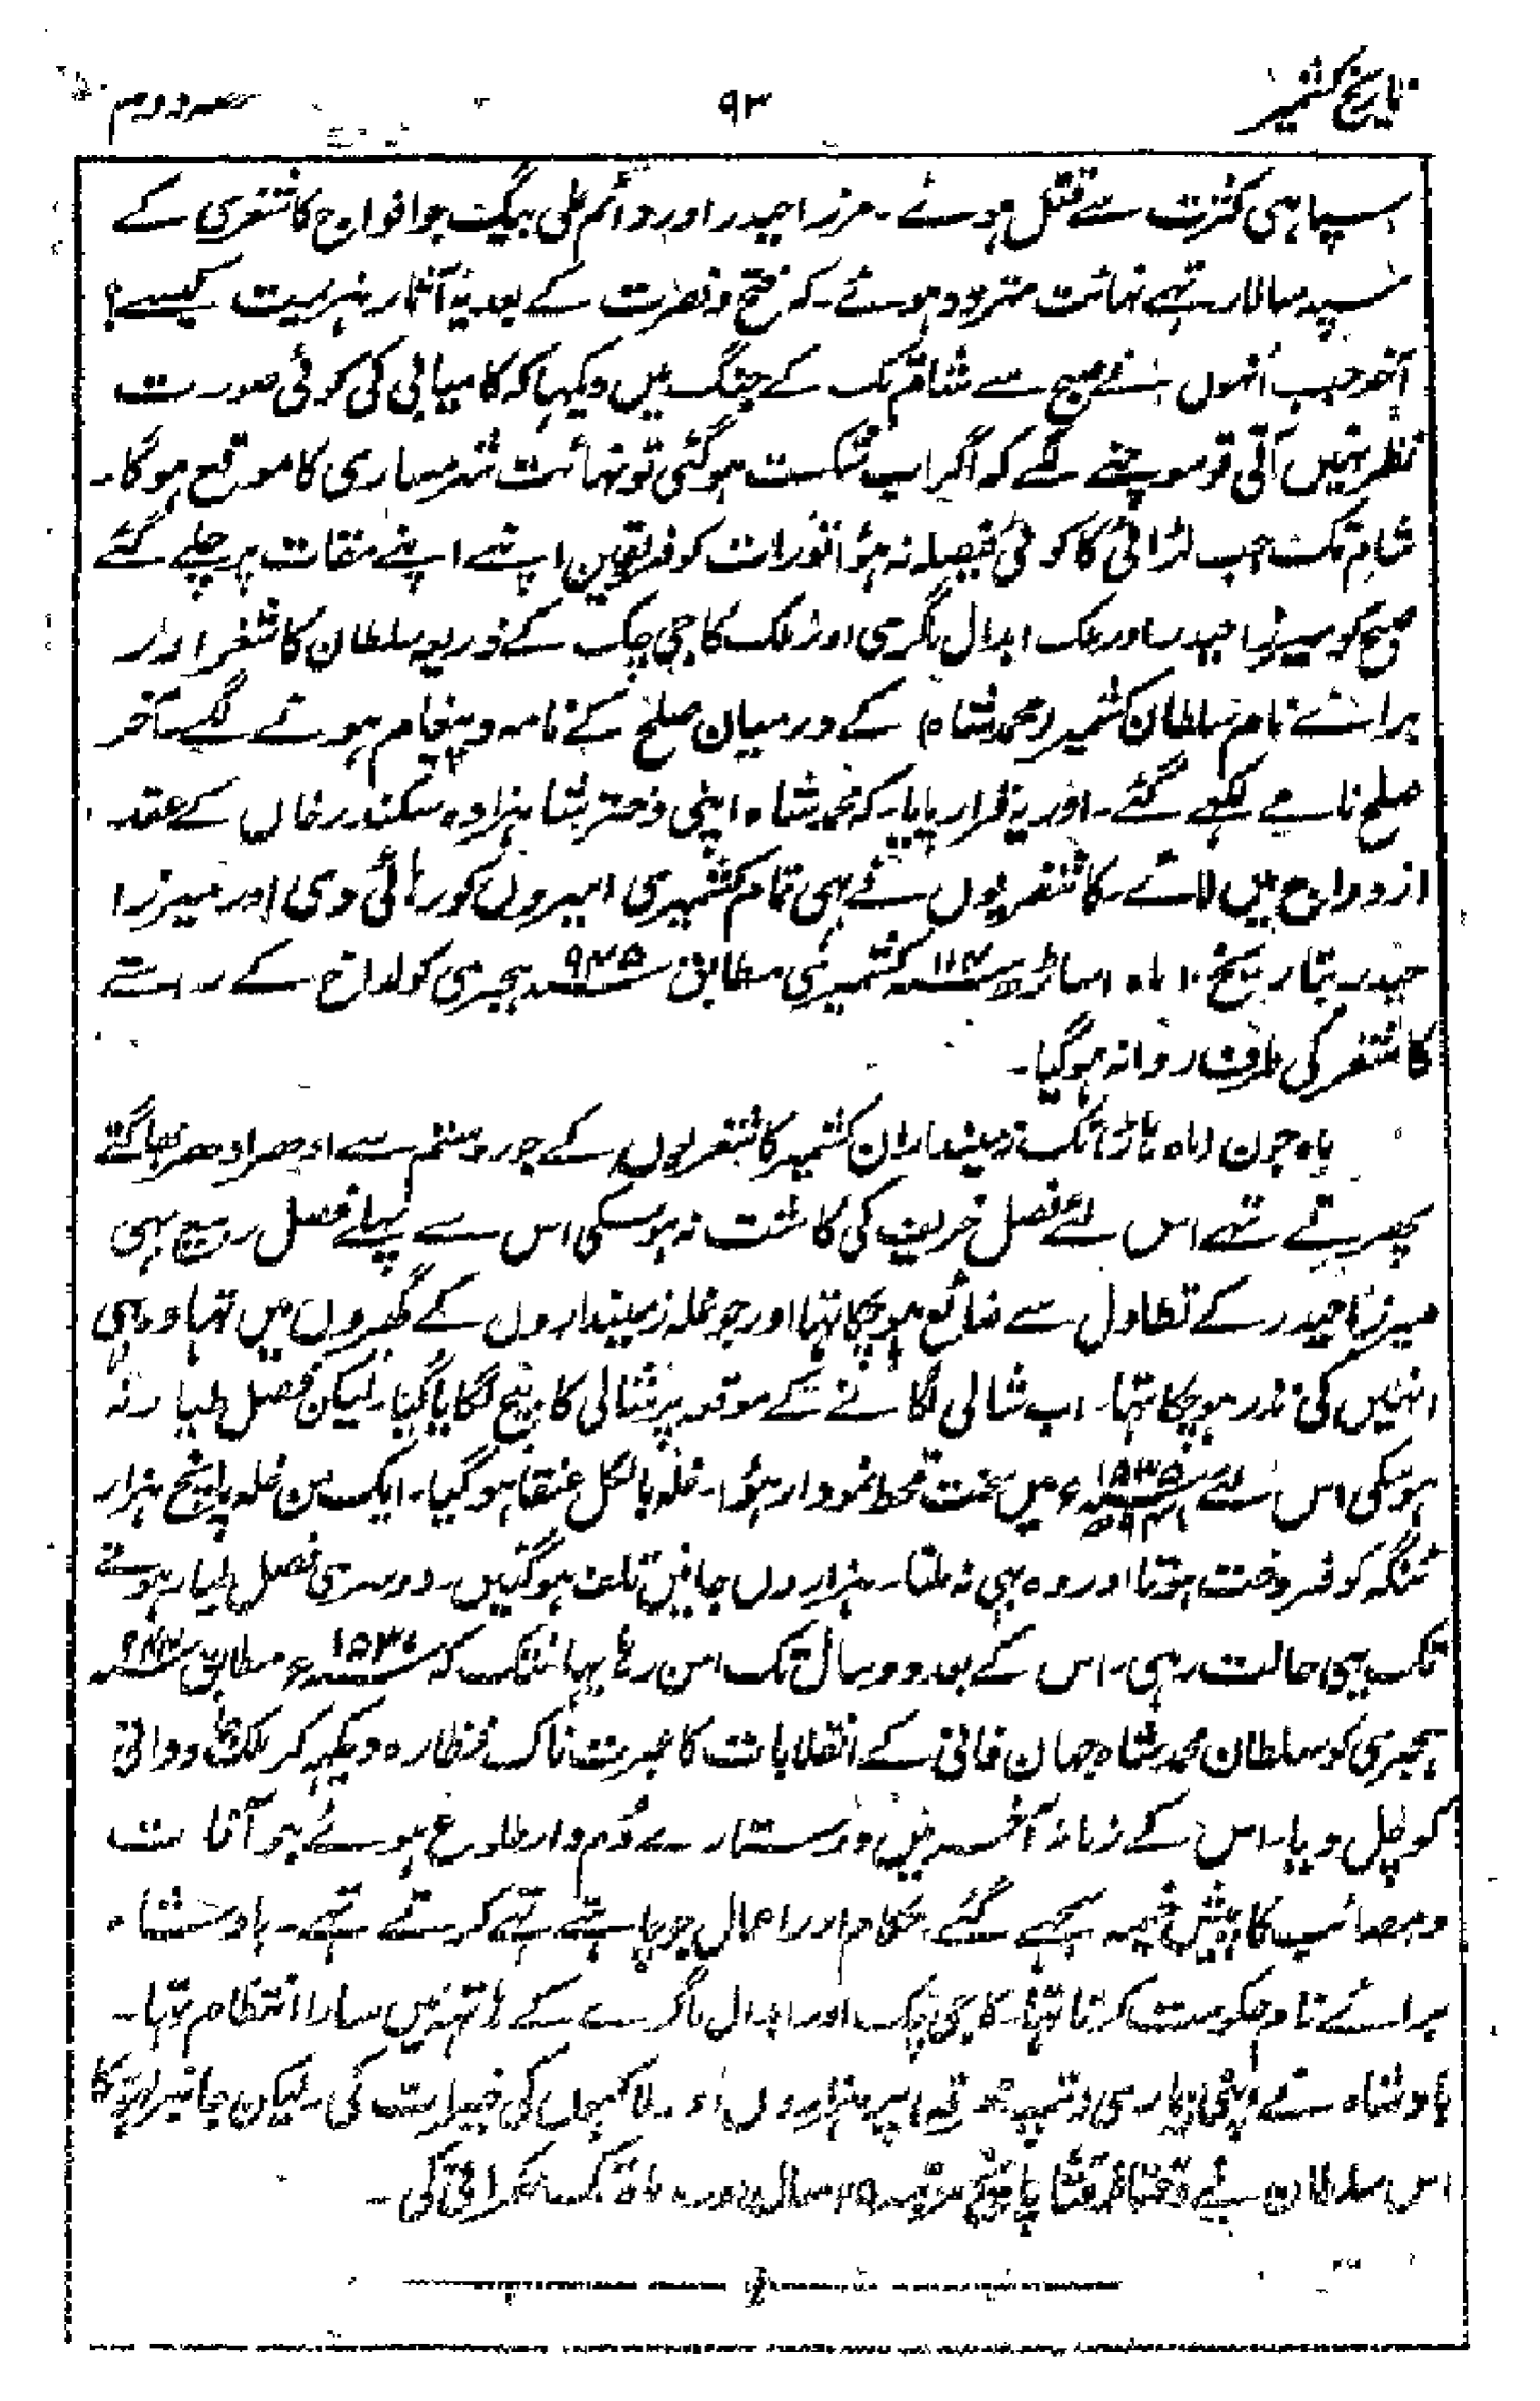 تاریخ کشمیر ۹۳ حصہ دوم
سپاہی کثرت سے قتل ہوئے۔ مرزا حیدر اور دائم علی بیگ جو افواج کاشغری کے
سپہ سالار تہے نہائت متردد ہوئے۔ کہ فتح و نصرت کے بعد یہ آثار ہزیمت کیسے؟
آخر جب اُنہوں نے صبح سے شام تک کے جنگ میں دیکہا کہ کامیابی کی کوئی صورت
نظر نہیں آتی تو سوچنے لگے کہ اگر اب شکست ہوگئی تو نہائت شرمساری کا موقع ہوگا۔
شام تک جب لڑائی کا کوئی فیصلہ نہ ہؤا تو رات کو فریقین اپنے اپنے مقات پر چلے گئے
صبح کو میرزا حیدر اور ملک ابدال ماگری اور ملک کاجی چک کے ذریعہ سلطان کاشغر اور
برائے نام سلطان کشمیر (محمد شاہ) کے درمیان صلح کے نامہ و پیغام ہونے لگے آخر
صلح نامے لکہے گئے۔ اور یہ قرار پایا۔ کہ محمد شاہ اپنی دختر بشاہزادہ سکندر خاں کے عقد
ازدواج میں لائے۔ کاشغریوں نے بہی تمام کشمیری امیروں کو رہائی دی اور میرزا
حیدر بتاریخ ۱۰ ماہ اساڑھ کشمیری مطابق ۹۳۵ ہجری کو لداخ کے راستے
کاشغر کی طرف روانہ ہوگیا۔
ماہ جون (ماہ ہاڑ) تک زمینداران کشمیر کاشغریوں کے جور و ستم سے ادھر ادھر بھاگتے
پھرتے تہے اس لئے فصل خریف کی کاشت نہ ہوسکی اس سے پہلے فصل ربیع بہی
میرزا حیدر کے تطاول سے ضائع ہوچکا تہا اور جو غلہ زمینداروں کے گھروں میں تہا وہ بہی
انہیں کی نذر ہوچکا تہا۔ اب شالی لگانے کے موقعہ پر شالی کا بیج لگایا گیا۔ لیکن فصل طیار نہ
ہوسکی اس لئے ء میں سخت قحط نمودار ہؤا۔ غلہ بالکل عنقا ہوگیا۔ ایک من غلہ پانچ ہزار
ٹنگہ کو فروخت ہوتا اور وہ بہی نہ ملتا۔ ہزاروں جانیں تلف ہوگئیں۔ دوسری فصل طیار ہونے
تک یہی حالت رہی۔ اس کے بعد دو سال تک امن رہا یہانتک کہ ء مطابق
ہجری کو سلطان محمد شاہ جہان فانی کے انقلابات کا عبرت ناک نظارہ دیکہہ کر ملک
کو چل دیا۔ اس کے زمانہ آخر میں دو ستارے دُم دار طلوع ہوئے جو آفات
و مصائب کا پیش خیمہ سمجہے گئے۔ حکام اور اعمال جو چاہتے تہے کرتے تہے۔ بادشاہ
برائے نام حکومت کرتا تہا۔ کاجی چک اور ابدال ماگرے کے ہاتہہ میں سارا انتظام تہا۔
بادشاہ نے اپنی بیماری و تپ ہزاروں اور لاکہوں کی خیرات کی۔ لیکن جانبر نہ ہو سکا
اس سلطان نے وقتاً فوقتاً پانچ مرتبہ سال ماہ تک حکمرانی کی۔